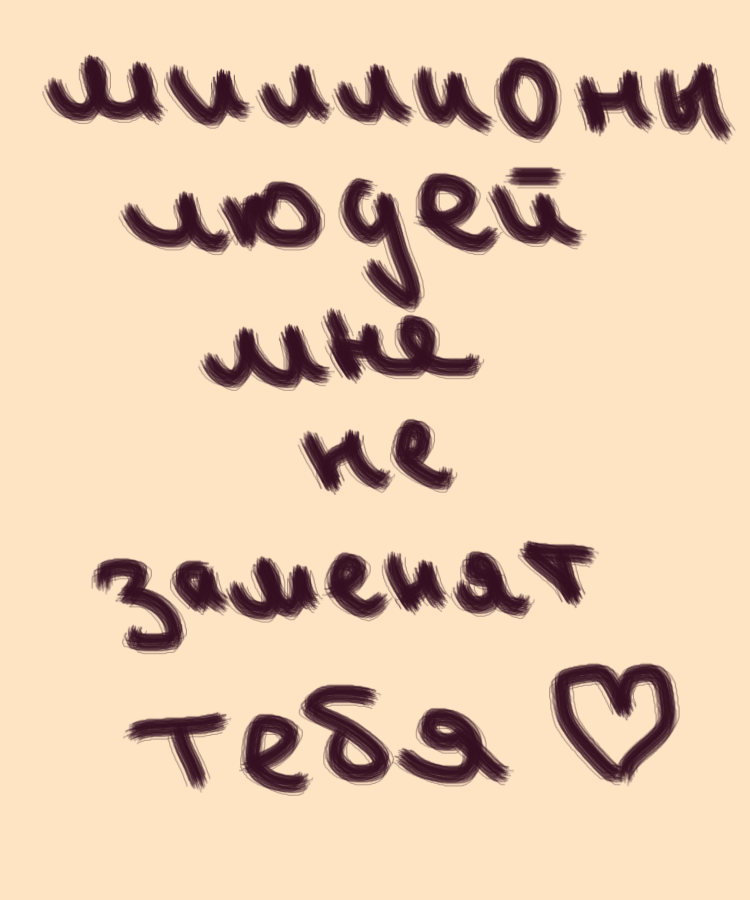 миллиони
людей
мне
не
заменят
тебя ♡